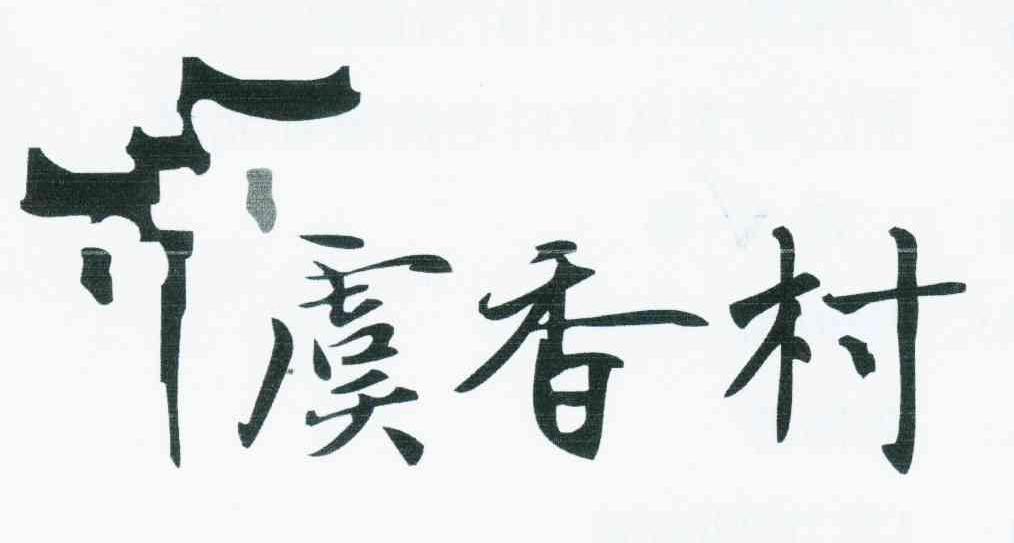 虞香村